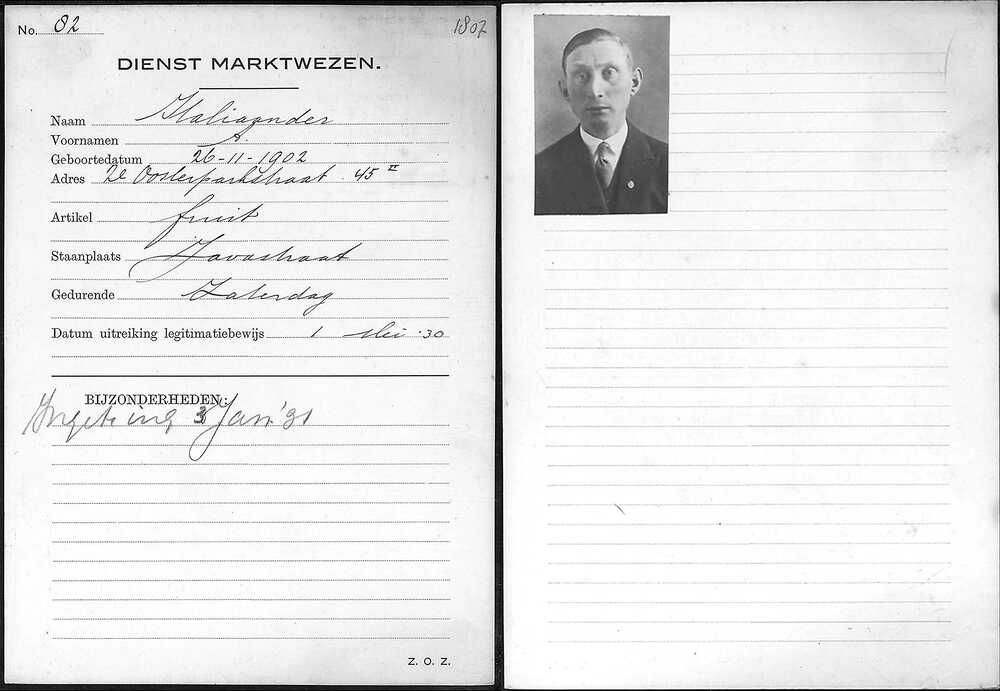 No. 82
1807
DIENST MARKTWEZEN.
Naam Italiaander
Voornamen A.
Geboortedatum 26-11-1902
Adres 2e Oosterparkstraat 45 II
Artikel fruit
Staanplaats Javastraat
Gedurende Zaterdag
Datum uitreiking legitimatiebewijs 1 Mei '30
BIJZONDERHEDEN:
3 Jan. '31
Z. O. Z.